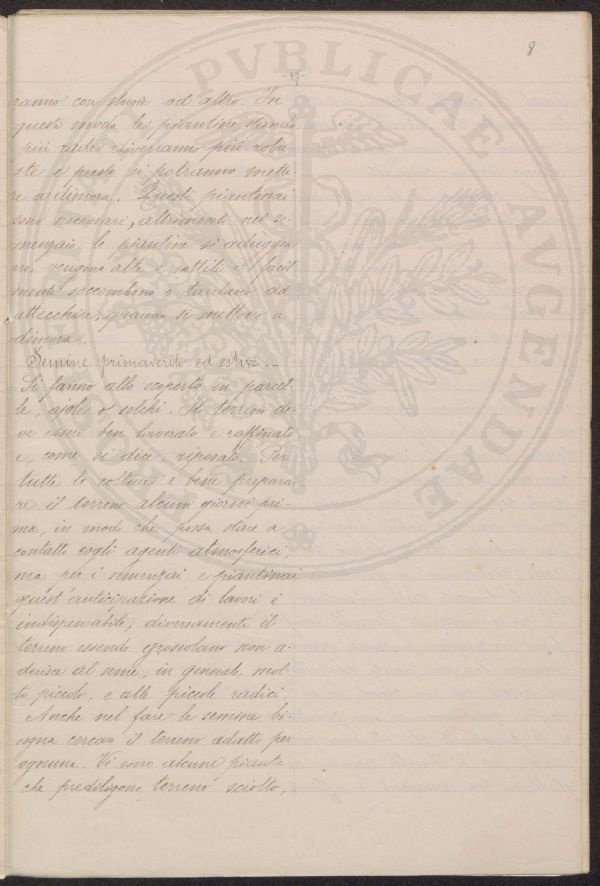 8
-17-
ranno con stuoie od altro. In
questo modo le piantine, stando
più rade, diverranno più robu-
ste e presto si potranno mette-
re a dimora. Questi piantinai
sono necessari, altrimenti nel se-
menzaio le piantine si aduggia-
no, vengono alte e sottili e facil
mente soccombono o tardano ad
attecchire, quando si mettono a
dimora.
Semine primaverili ed estive.-
Si fanno allo scoperto in parcel-
le, ajole o solchi. Il terreno de-
ve essere ben lavorato e raffinato
e, come si dice, riposato. Per
tutte le colture è bene prepara-
re il terreno alcuni giorni pri-
ma, in modo che possa stare a
contatto cogli agenti atmosferici
ma per i semenzai e piantinai
quest'anticipazione di lavori è
indispensabile; diversamente il
terreno essendo grossolano non a-
derisce al seme, in generale mol-
to piccolo, e alle piccole radici.
Anche nel fare le semine bi-
sogna cercare il terreno adatto per
ognuna. Vi sono alcune piante
che prediligono terreno sciolto,
PUBLICAE
AUGENDAE